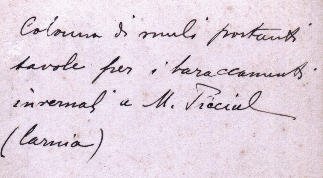 Colonna di muli portanti
tavole per i baraccamenti
invernali a M. Picciul
(Carnia)